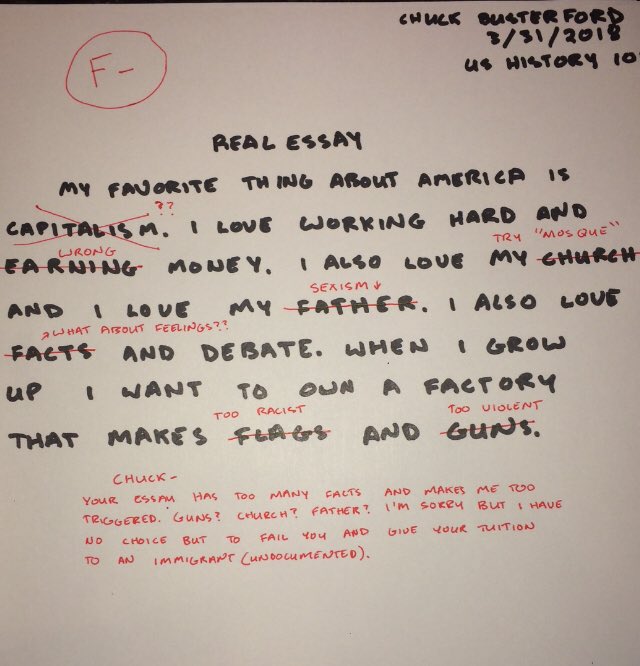 CHUCK BUSTERFORD
3/31/2018
US HISTORY 10
F-
REAL ESSAY
MY FAVORITE THING ABOUT AMERICA IS
??
CAPITALISM. I LOVE WORKING HARD AND
WRONG
TRY "MOSQUE"
EARNING MONEY. I ALSO LOVE MY CHURCH
SEXISM
AND I LOVE MY FATHER. I ALSO LOVE
WHAT ABOUT FEELINGS??
FACTS AND DEBATE. WHEN I GROW
UP I WANT TO OWN A FACTORY
TOO RACIST
TOO VIOLENT
THAT MAKES FLAGS AND GUNS.
CHUCK-
YOUR ESSAY HAS TOO MANY FACTS AND MAKES ME TOO
TRIGGERED. GUNS? CHURCH? FATHER? I'M SORRY BUT I HAVE
NO CHOICE BUT TO FAIL YOU AND GIVE YOUR TUITION
TO AN IMMIGRANT (UNDOCUMENTED).